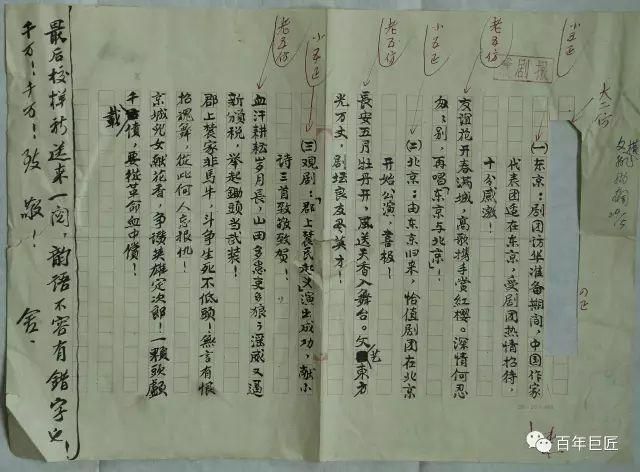 大二仿
小五正
(一)东京:剧团访华准备期间,中国作家
代表团适在东京,受剧团热情招待,
十分感激!
老五仿
友谊花开春满城,高歌携手赏红樱。深情何忍
匆匆别,再唱「东京与北京」!
小五正
(二)北京:由东京归来,恰值剧团在北京
开始公演,喜极!
老五仿
長安五月牡丹开,風送天香入舞台。文艺東方
光万丈,剧坛良友尽英才!
小五正
(三)观剧:「郡上農民起义」演出成功,献小
诗三首致敬致贺!
老五仿
血汗耕耘岁月長,山田多恶吏多狼;淫威又逼
新颁税,举起鋤头当武装!
郡上農家非马牛,斗争生死不低头!無言有恨
招魂舞,从此何人忘报仇!
京城儿女献花香,争赞英雄定次郎!一颗头颅
千载债,要從革命血中償!
最后校样祈送来一阅,韵语不容有错字也!
千万!千万!致敬!舍.
百年巨匠